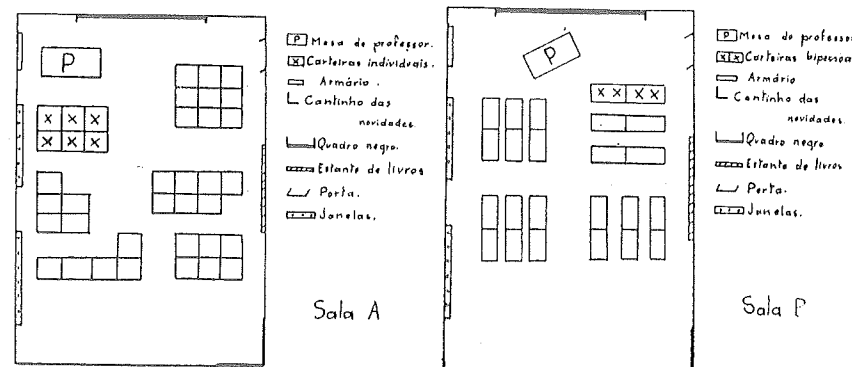 P
X X X
X X X
P Mesa do professor.
X Carteiras individuais.
Armário.
Cantinho das
novidades.
Quadro negro.
Estante de livros
Porta.
Janelas.
Sala A
P
X X X X
P Mesa do professor
XX Carteiras
Armário
Cantinho das
novidades.
Quadro negro.
Estante de livros
Porta.
Janelas.
Sala